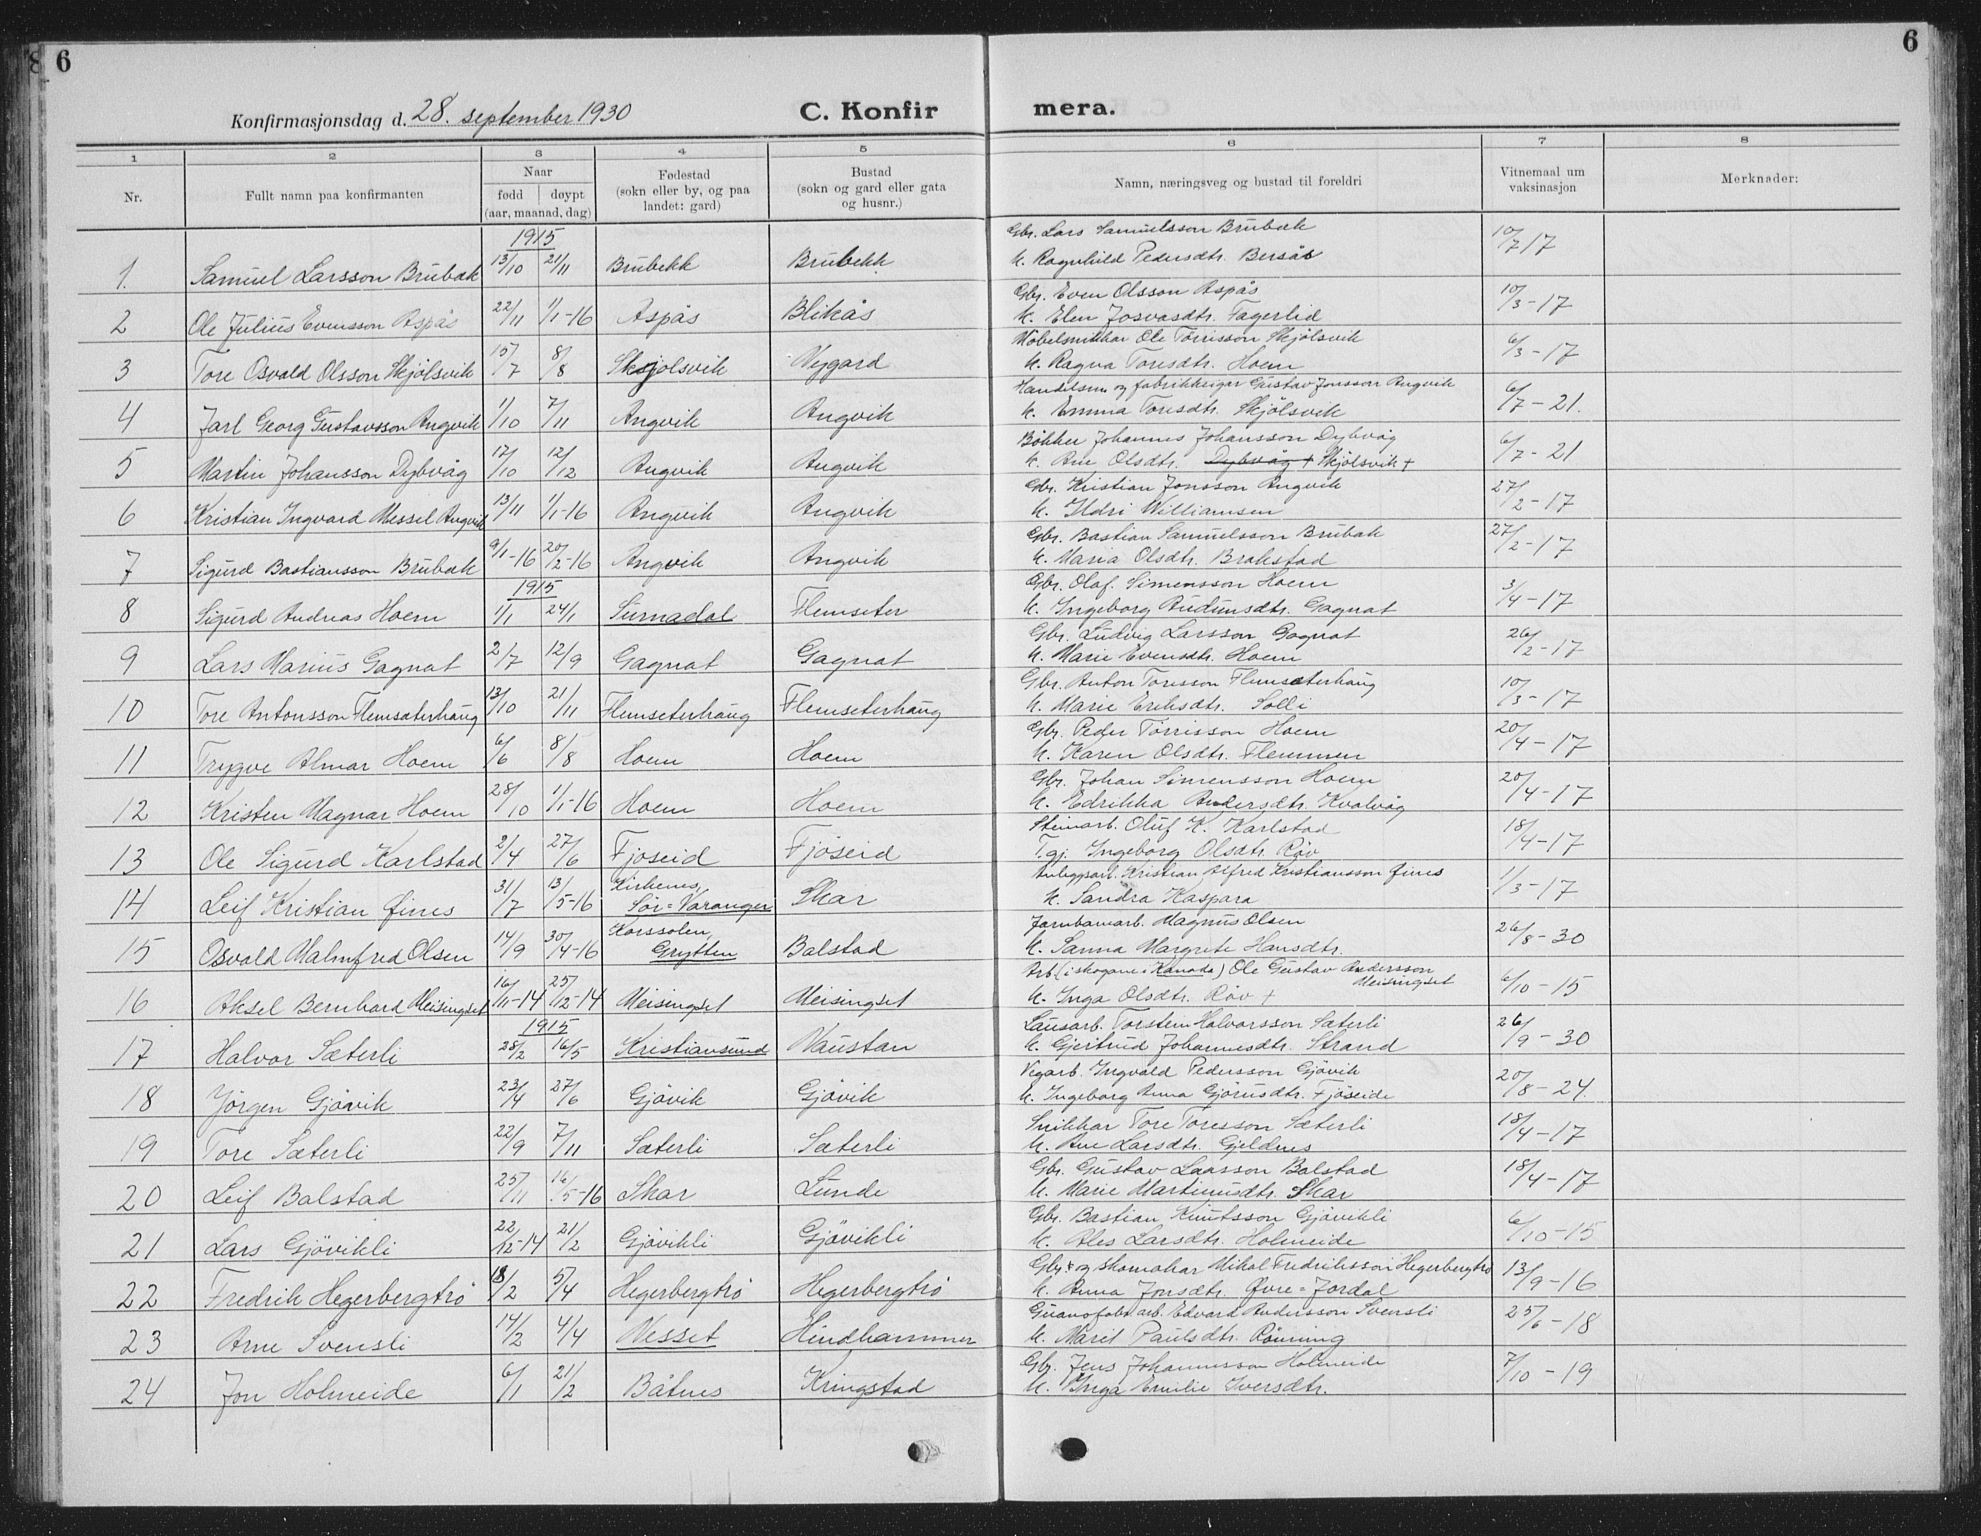 6
6
Konfirmasjonsdag d. 28. september 1930
C. Konfir
mera.
1 2 3 4 5 6 7 8
Nr.
Fullt namn paa konfirmanten
Naar
fødd døypt
(aar, maanad, dag)
Fødestad
(sokn eller by, og paa
landet: gard)
Bustad
(sokn og gard eller gata
og husnr.)
Namn, næringsveg og bustad til foreldri
Vitnemaal um
vaksinasjon
Merknader:
1915
Gbr. Lars Samuelsson Brubæk
1. Samuel Larsson Brubæk 13/10 21/11 Brubekk Brubekk K. Ragnhild Pedersdtr. Bersås 10/7 17
Gbr. Even Olsson Aspås
2 Ole Julius Evensson Aspås 22/11 1/1-16 Aspås Blikås K. Elen Josvasdtr. Fagerlid 10/3-17
Møbelsnikkar Ole Torrisson Skjölsvik
3 Tore Osvald Olsson Skjölsvik 15/7 8/8 Skjolsvik Nygard K. Ragna Toresdtr. Hoem 6/3-17
Handelsm. og fabrikkeigar Gustav Jonsson Angvik
4 Jarl Georg Gustavsson Angvik 1/10 7/11 Angvik Angvik K. Emma Toresdtr. Skjölsvik 6/7-21.
Bøkker Johannes Johansson Dybvåg
5 Martin Johansson Dybvåg 17/10 12/12 Angvik Angvik K. Ane Olsdtr. Dybvåg + Skjölsvik + 6/7-21
Gbr. Kristian Jonsson Angvik
6 Kristian Ingvard Messel Angvik 13/11 1/1-16 Angvik Angvik K. Ildri Williamsen 27/2-17
Gbr. Bastian Samuelsson Brubæk
7 Sigurd Bastiansson Brubæk 9/1-16 20/2-16 Angvik Angvik K. Maria Olsdtr. Brakstad 27/2-17
1915
Gbr. Olaf. Simensson Hoem
8 Sigurd Andreas Hoem 1/1 24/1 Surnadal Flemseter K. Ingeborg Audunsdtr. Gagnat 3/4-17
Gbr. Ludvig Larsson Gagnat
9 Lars Marius Gagnat 2/7 12/9 Gagnat Gagnat K. Marie Evensdtr. Hoem 26/2-17
Gbr. Anton Toresson Flemsæterhaug
10 Tore Antonsson Flemsæterhaug 13/10 21/11 Flemseterhaug Flemseterhaug K. Marie Eriksdtr. Solli 10/3-17
Gbr. Peder Torrisson Hoem
11 Trygve Almar Hoem 6/6 8/8 Hoem Hoem K. Karen Olsdtr. Flemmen 20/4-17
Gbr. Johan Simensson Hoem
12 Kristen Magnar Hoem 28/10 1/1-16 Hoem Hoem K. Edrikka Andersdtr. Kvalvåg 20/4-17
Steinarb. Oluf K. Karlstad
13 Ole Sigurd Karlstad 2/4 27/6 Fjøseid Fjøseid T.gj. Ingeborg Olsdtr. Røv 18/4-17
Kirkenes, Anleggsarb. Kristian Alfred Kristiansson Øines
14 Leif Kristian Øines 31/7 13/5-16 Sør-Varanger Skar K. Sandra Kaspara 1/3-17
Korssolen, Jarnbanearb. Magnus Olsen
15 Osvald Malmfred Olsen 14/9 30/4-16 Grytten Balstad K. Sanna Margrete Hansdtr. 26/8-30
Arb. (i skogane i Kanada) Ole Gustav Andersson
Meisingset
16 Aksel Bernhard Meisingset 16/11-14 25/12-14 Meisingset Meisingset K. Inga Olsdtr. Røv + 6/10-15
1915
Lausarb. Torstein Halvorsson Sæterli
17 Halvor Sæterli 28/2 16/5 Kristiansund Vaustan K. Gjertrud Johannesdtr. Strand 26/9-30
Vegarb. Ingvald Pedersson Gjövik
18 Jörgen Gjövik 23/4 27/6 Gjövik Gjövik K. Ingeborg Anna Gjörusdtr. Fjöseide 20/8-24
Snikkar Tore Toresson Sæterli
19 Tore Sæterli 22/9 7/11 Sæterli Sæterli K. Ane Larsdtr. Gjeldnes 18/4-17
Gbr. Gustav Laasson Balstad
20 Leif Balstad 25/11 16/5-16 Skar Lunde K. Marie Martinusdtr. Skar 18/4-17
Gbr. Bastian Knutsson Gjövikli
21 Lars Gjövikli 22/12-14 21/2 Gjövikli Gjövikli K. Ales Larsdtr. Holmeide 6/10-15
Gbr. og skomakar Mikal Fredriksson Hegerbergtrø
22 Fredrik Hegerbergtrø 18/2 5/4 Hegerbergtrø Hegerbergtrø K. Anna Jonsdtr. Øvre-Jordal 13/9-16
Guanofabr.arb. Edvard Andersson Svensli
23 Arne Svensli 14/2 4/4 Nesset Hindhammer K. Marit Paulsdtr. Rönning 25/6-18
Gbr. Jens Johannesson Holmeide
24 Jon Holmeide 6/1 21/2 Båtnes Kringstad K. Inga Emilie Iversdtr. 7/10-19